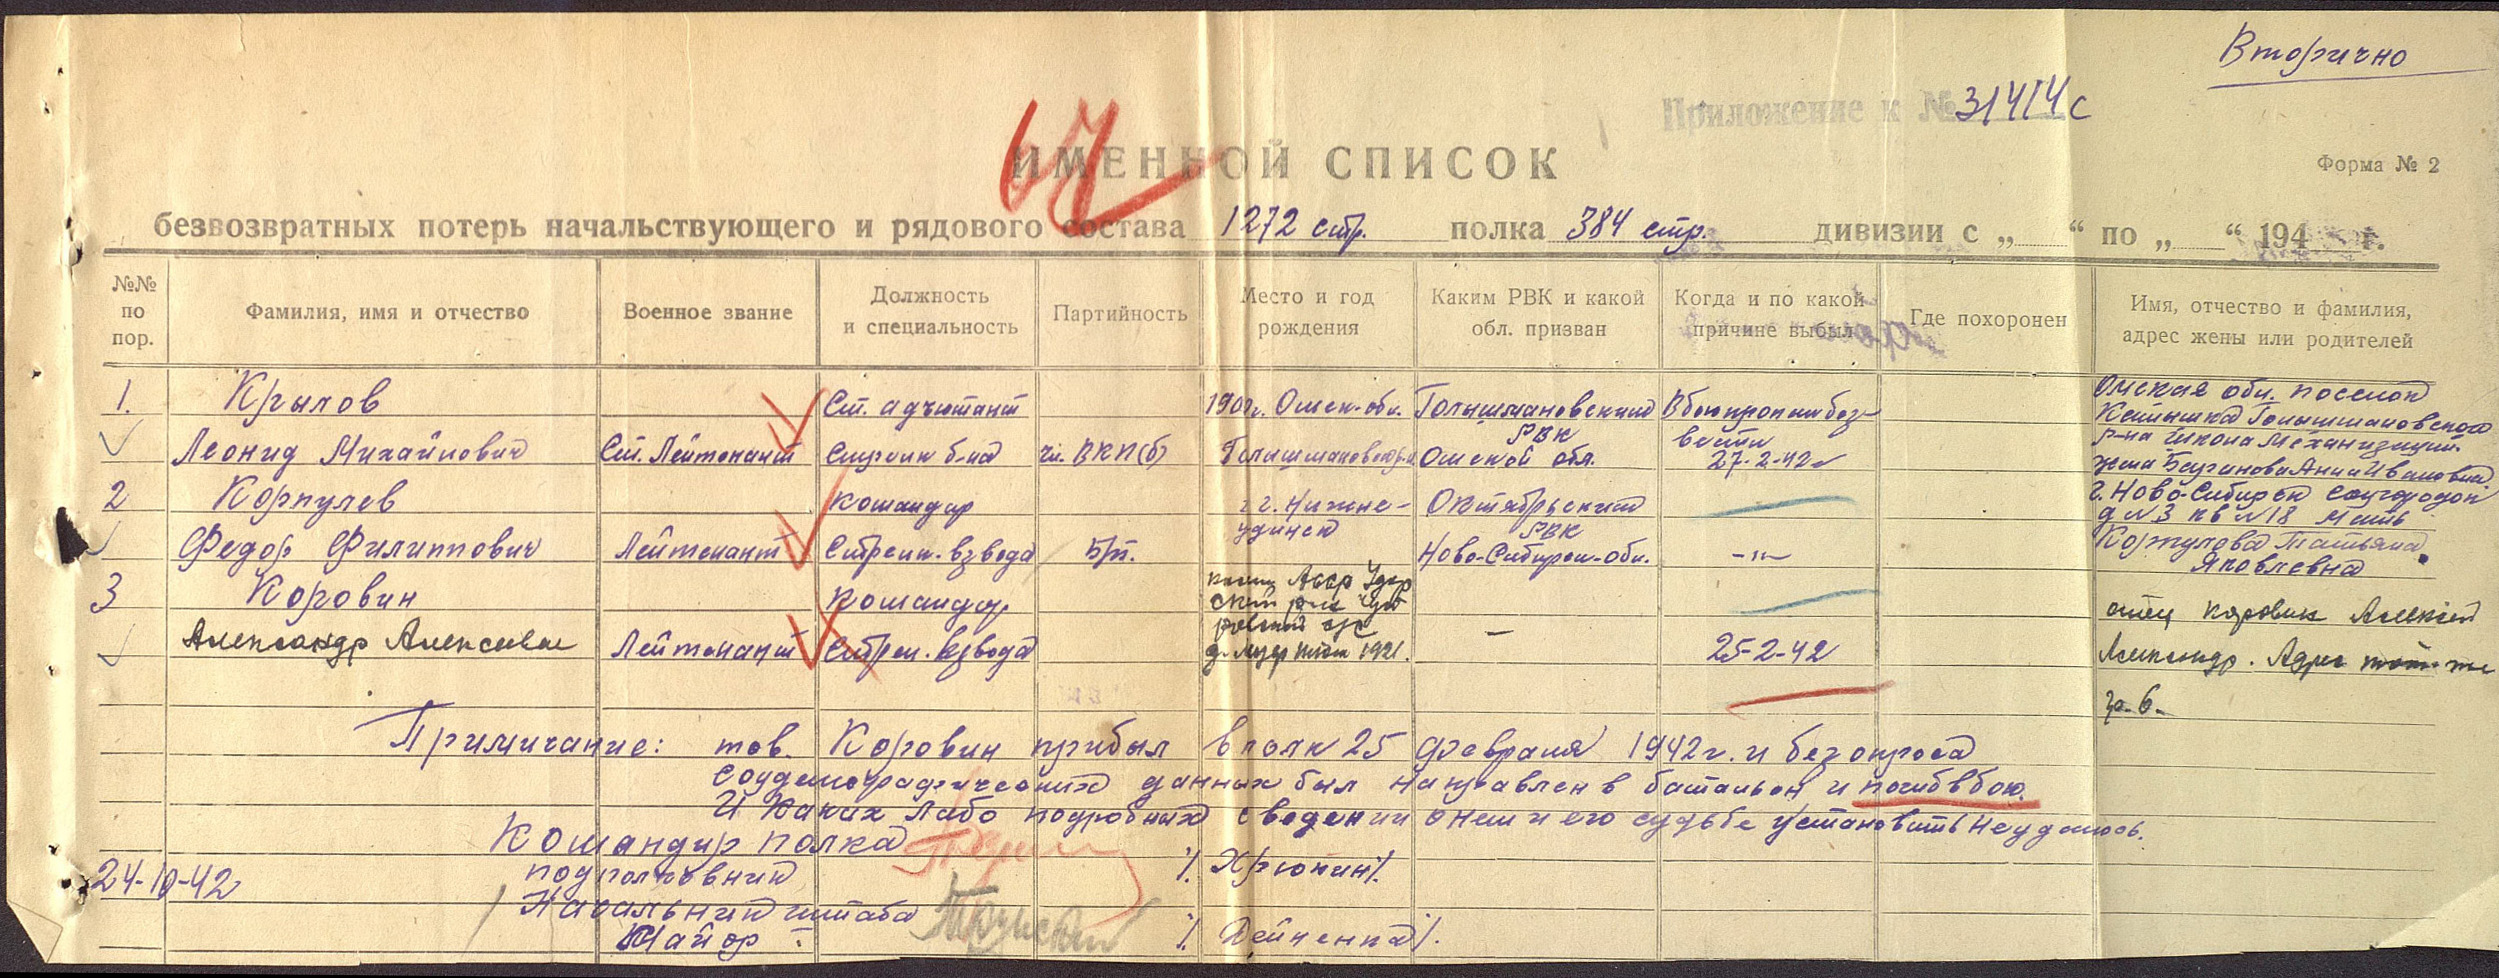 Вторично
Приложение к № 31414с
67
ИМЕННОЙ СПИСОК
Форма № 2
безвозвратных потерь начальствующего и рядового состава 1272 стр. полка 384 стр. дивизии с „ “ по „ “ 194 г.
№№ по пор.
Фамилия, имя и отчество
Военное звание
Должность и специальность
Партийность
Место и год рождения
Каким РВК и какой обл. призван
Когда и по какой причине выбыл
Где похоронен
Имя, отчество и фамилия, адрес жены или родителей
1. Крылов
Леонид Михайлович
Ст. Лейтенант
Ст. адъютант
Стрелк б-на
чл. ВКП(б)
Омск. обл.
Голышмановский
РВК
Омской обл.
В бою пропал без
вести
27-2-42
Омская обл. поселок
Катышка Голышмановского
р-на школа Механизации
жена Анна Ивановна
2 Корпулев
Федор Филиппович
Лейтенант
командир
Стрелк. взвода
б/п.
г. Нижне-
удинск
Октябрьский
РВК
Ново-Сибирск. обл.
-"-
г. Ново-Сибирск Соцгородок
д № 3 кв № 18 Мать
Татьяна
Яковлевна
3 Коровин
Александр Алексеевич
Лейтенант
командир
Стрелк. взвода
1921.
-
25-2-42
отец Коровин Алексей
Александр. Адрес тот же
гр. 6.
Примичание: тов. Коровин прибыл в полк 25 февраля 1942 г. и без опроса
данных был направлен в батальон и погиб в бою.
И каких либо подробных сведений о нем и его судьбе установить не удалось.
Командир полка
подполковник /Хрюкин/.
24-10-42
Начальник штаба
Майор /Дейченка/.